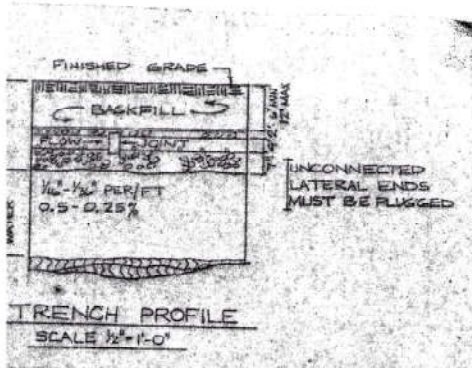 FINISHED GRADE
BACKFILL
FLOW JOINT
6" MIN
12" MAX
UNCONNECTED
LATERAL ENDS
MUST BE PLUGGED
1/16"-1/32" PER/FT
0.5-0.25%
TRENCH PROFILE
SCALE 1/2"=1'-0"